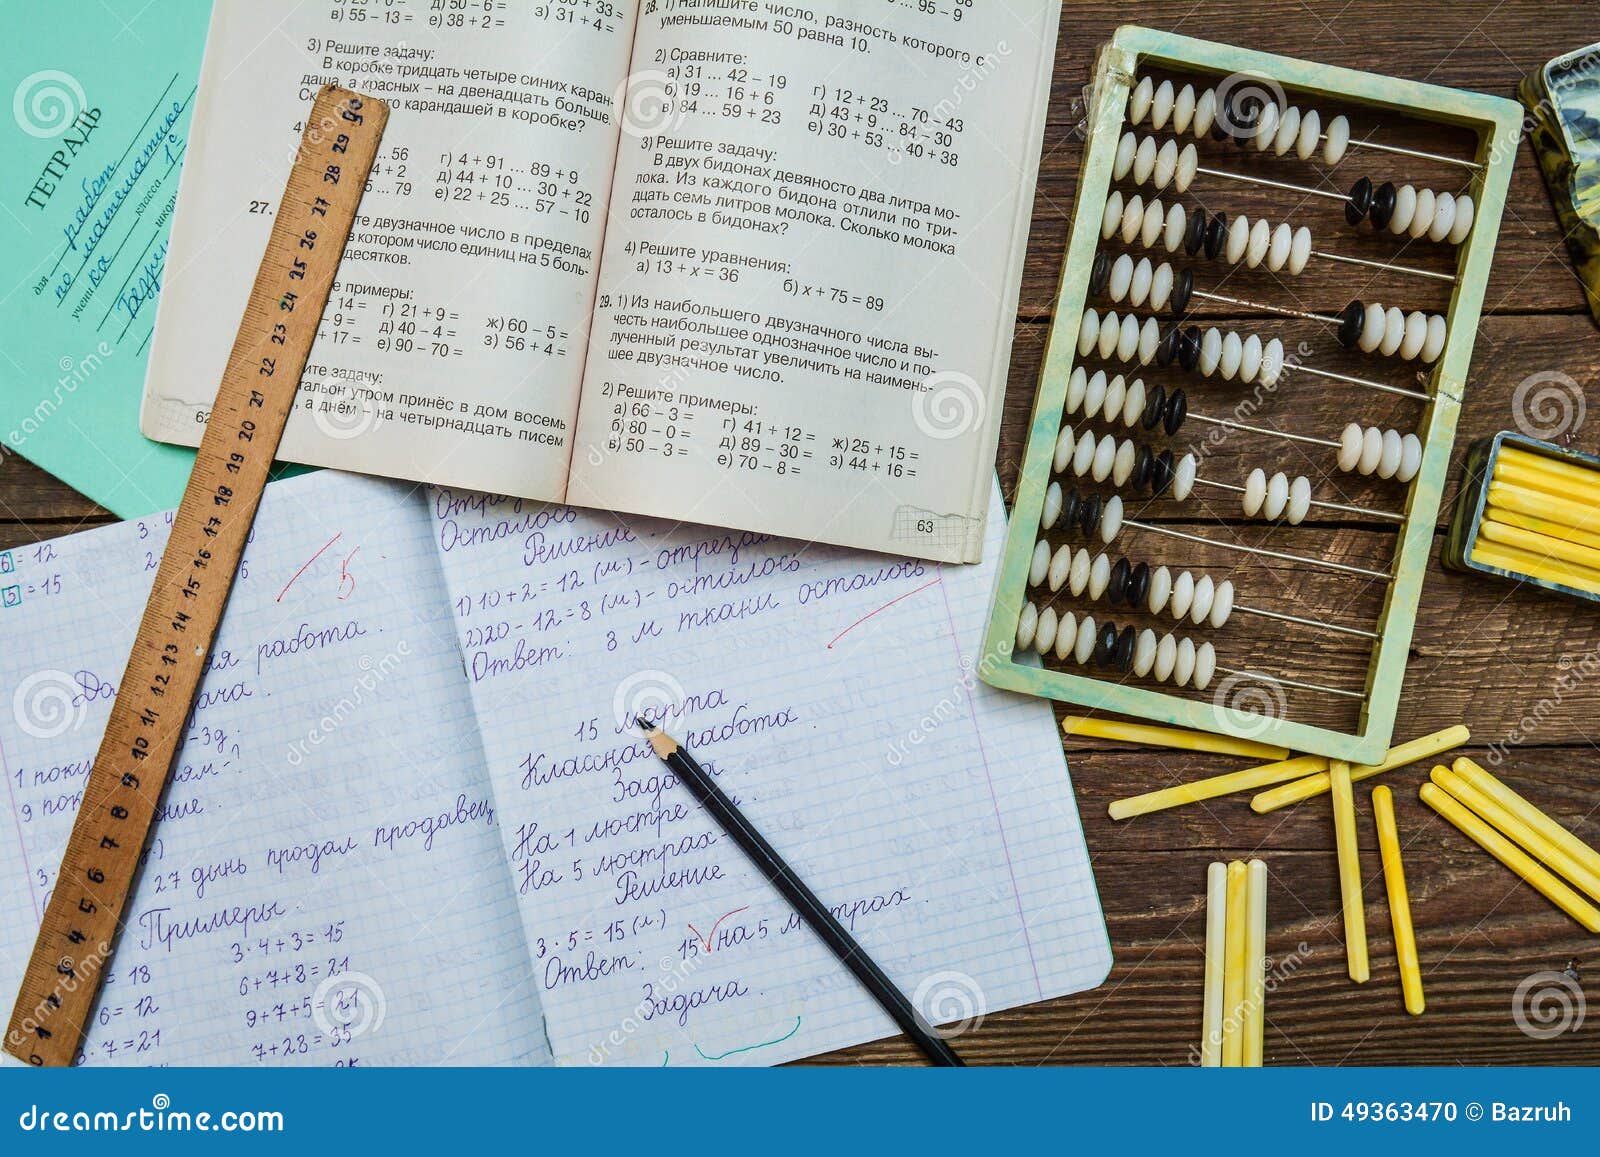 ТЕТРАДЬ
для работ
по математике
учени ка класса 1 с
школы
в) 55 – 13 = е) 38 + 2 = з) 31 + 4 =
3) Решите задачу:
В коробке тридцать четыре синих каран-
даша, а красных – на двенадцать больше.
карандашей в коробке?
4)
... 56 г) 4 + 91 ... 89 + 9
4 + 2 д) 44 + 10 ... 30 + 22
5 ... 79 е) 22 + 25 ... 57 – 10
27.
двузначное число в пределах
в котором число единиц на 5 боль-
десятков.
примеры:
+ 14 = г) 21 + 9 = ж) 60 – 5 =
– 9 = д) 40 – 4 = з) 56 + 4 =
+ 17 = е) 90 – 70 =
задачу:
утром принёс в дом восемь
, а днём – на четырнадцать писем
62
... 95 – 9
28. 1) Напишите число, разность которого с
уменьшаемым 50 равна 10.
2) Сравните:
а) 31 ... 42 – 19 г) 12 + 23 ... 70 – 43
б) 19 ... 16 + 6 д) 43 + 9 ... 84 – 30
в) 84 ... 59 + 23 е) 30 + 53 ... 40 + 38
3) Решите задачу:
В двух бидонах девяносто два литра мо-
лока. Из каждого бидона отлили по три-
дцать семь литров молока. Сколько молока
осталось в бидонах?
4) Решите уравнения:
а) 13 + x = 36 б) x + 75 = 89
29. 1) Из наибольшего двузначного числа вы-
честь наибольшее однозначное число и по-
лученный результат увеличить на наимень-
шее двузначное число.
2) Решите примеры:
а) 66 – 3 = г) 41 + 12 = ж) 25 + 15 =
б) 80 – 0 = д) 89 – 30 = з) 44 + 16 =
в) 50 – 3 = е) 70 – 8 =
63
0 1 2 3 4 5 6 7 8 9 10 11 12 13 14 15 16 17 18 19 20 21 22 23 24 25 26 27 28 29 30
6 = 12 3 · 4
5 = 15 2 ·
5
работа.
задача.
– 3д.
1 поку
9 пок
27 дынь продал продавец
Примеры.
3 · 4 + 3 = 15
= 18 6 + 7 + 8 = 21
6 = 12 9 + 7 + 5 = 21
3 · 7 = 21 7 + 28 = 35
Осталось
Решение.
1) 10 + 2 = 12 (м) – отрезали
2) 20 – 12 = 8 (м) – осталось.
Ответ: 8 м ткани осталось
15 марта
Классная работа.
Задача
На 1 люстре –
На 5 люстрах –
Решение.
3 · 5 = 15 (л)
Ответ: 15 на 5 люстрах.
Задача.
dreamstime.com
ID 49363470 © Bazruh